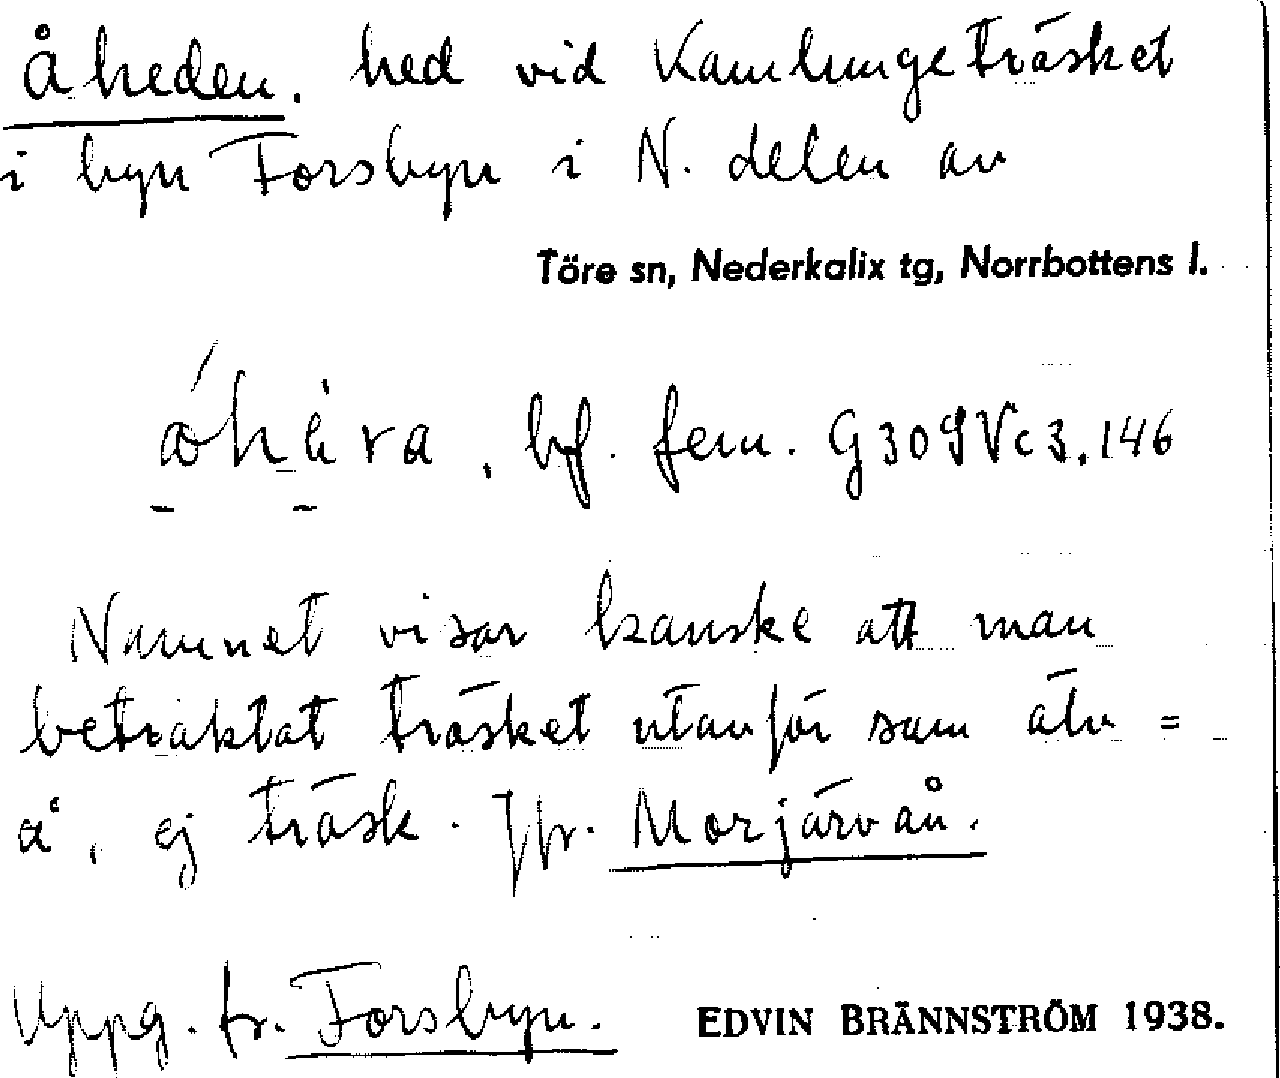 Åheden. hed vid Kamlungeträsket
i byn Forsbyn i N. delen av
Töre sn, Nederkalix tg, Norrbottens l.
bf. fem. G309Vc3.146
Namnet visar kanske att man
beträktat träsket utanför som älv =
å, ej träsk. Jfr. Morjärvån.
Uppg. fr. Forsbyn. EDVIN BRÄNNSTRÖM 1938.